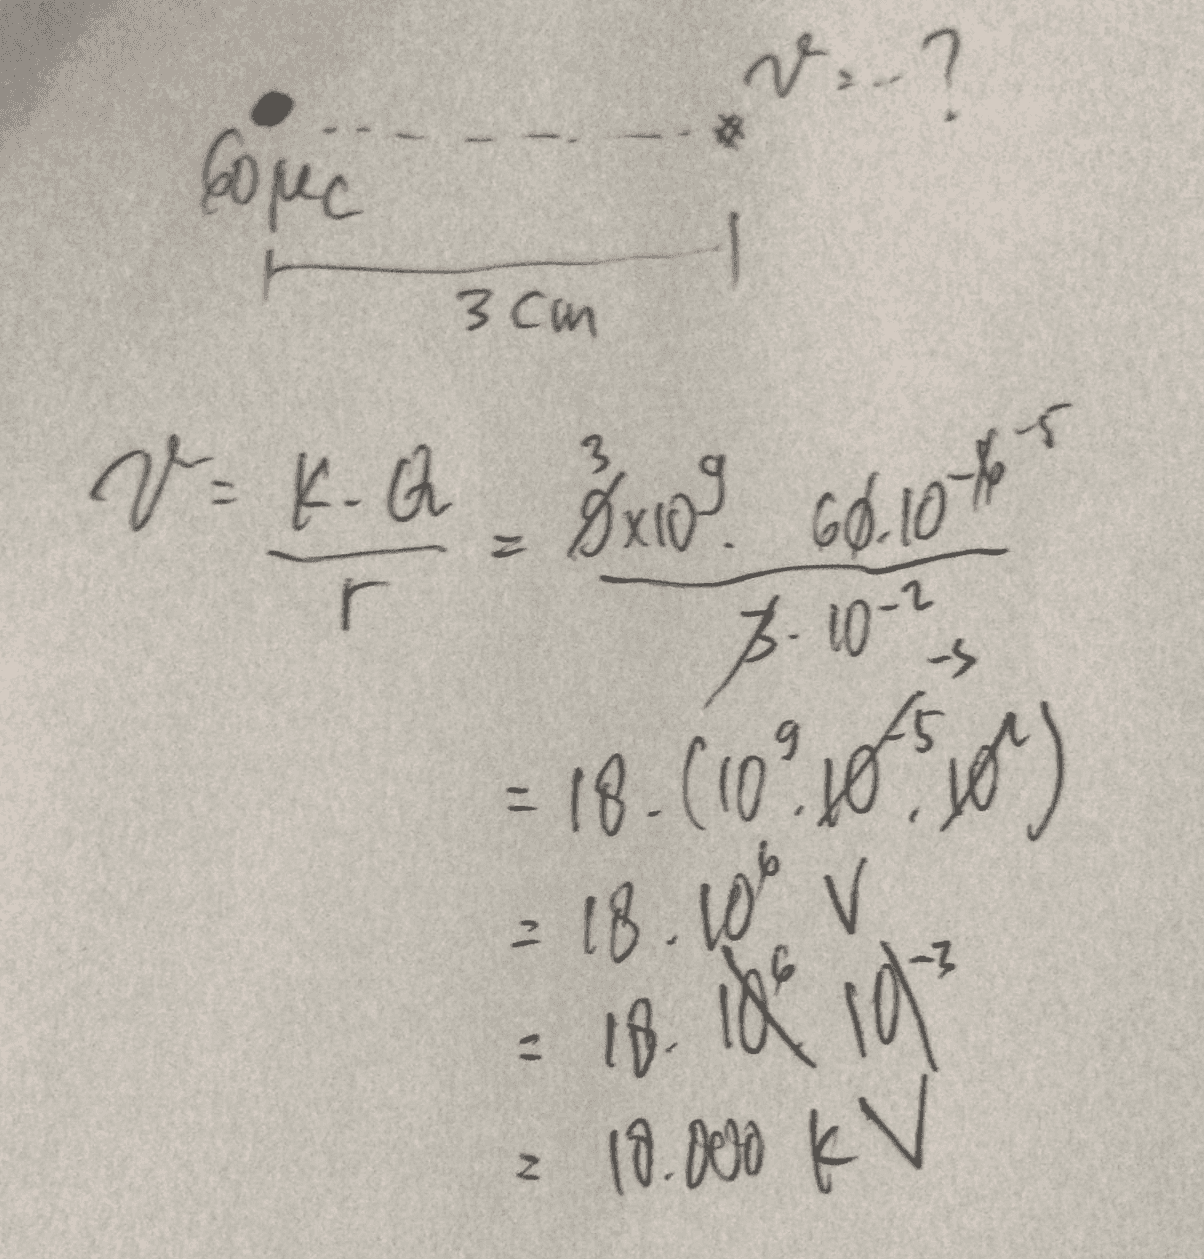 v = ... ?
60 μc
3 cm
v = k . Q / r = 9̸ ³ x 10⁹ . 60̸ . 10⁻⁶̸ ⁻⁵ / 3̸ . 10⁻²
= 18 . (10⁹ . 1̸0̸⁻⁵̸ . 1̸0̸²) ⁻³
= 18 . 10⁶ V
= 18 . 1̸0̸⁶ 1̸0̸⁻³
= 18.000 kV